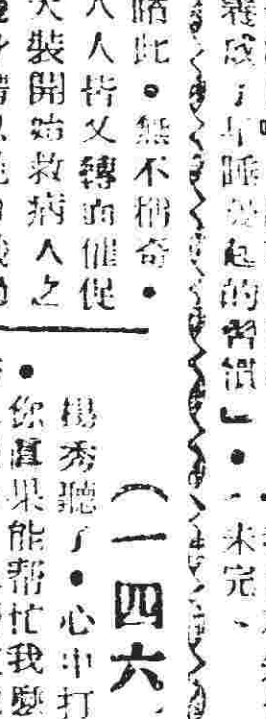 養成了早睡晏起的習慣」。(未完)
睹此。無不稱奇。
人人皆又轉而催促
大裝開始救病人之
(一四六)
楊秀聽了。心中打
你真果能幫忙我麼